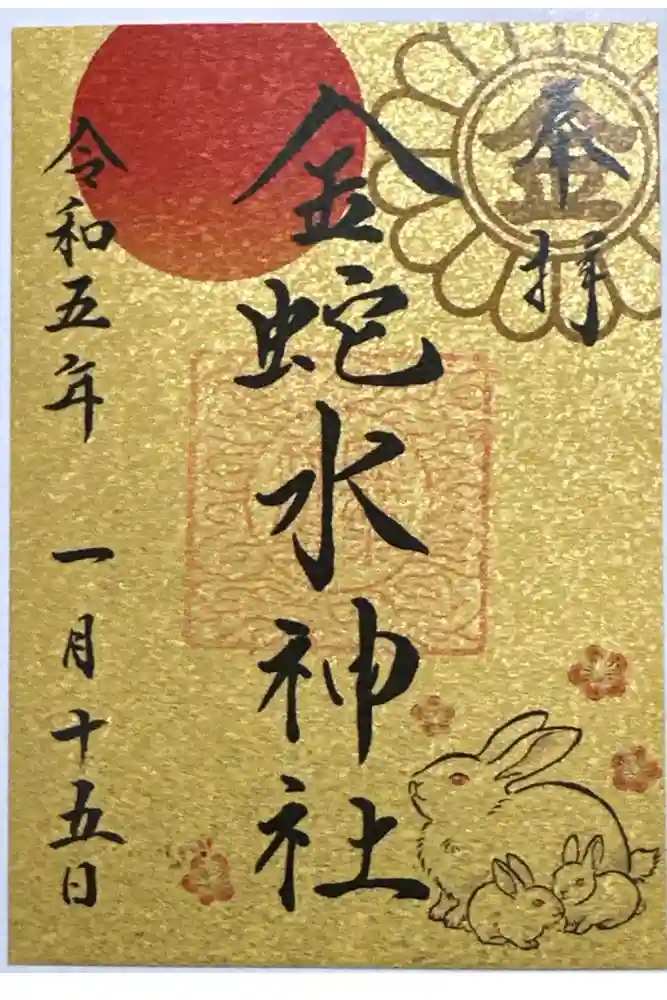 奉拝
金
金蛇水神社
令和五年 一月十五日